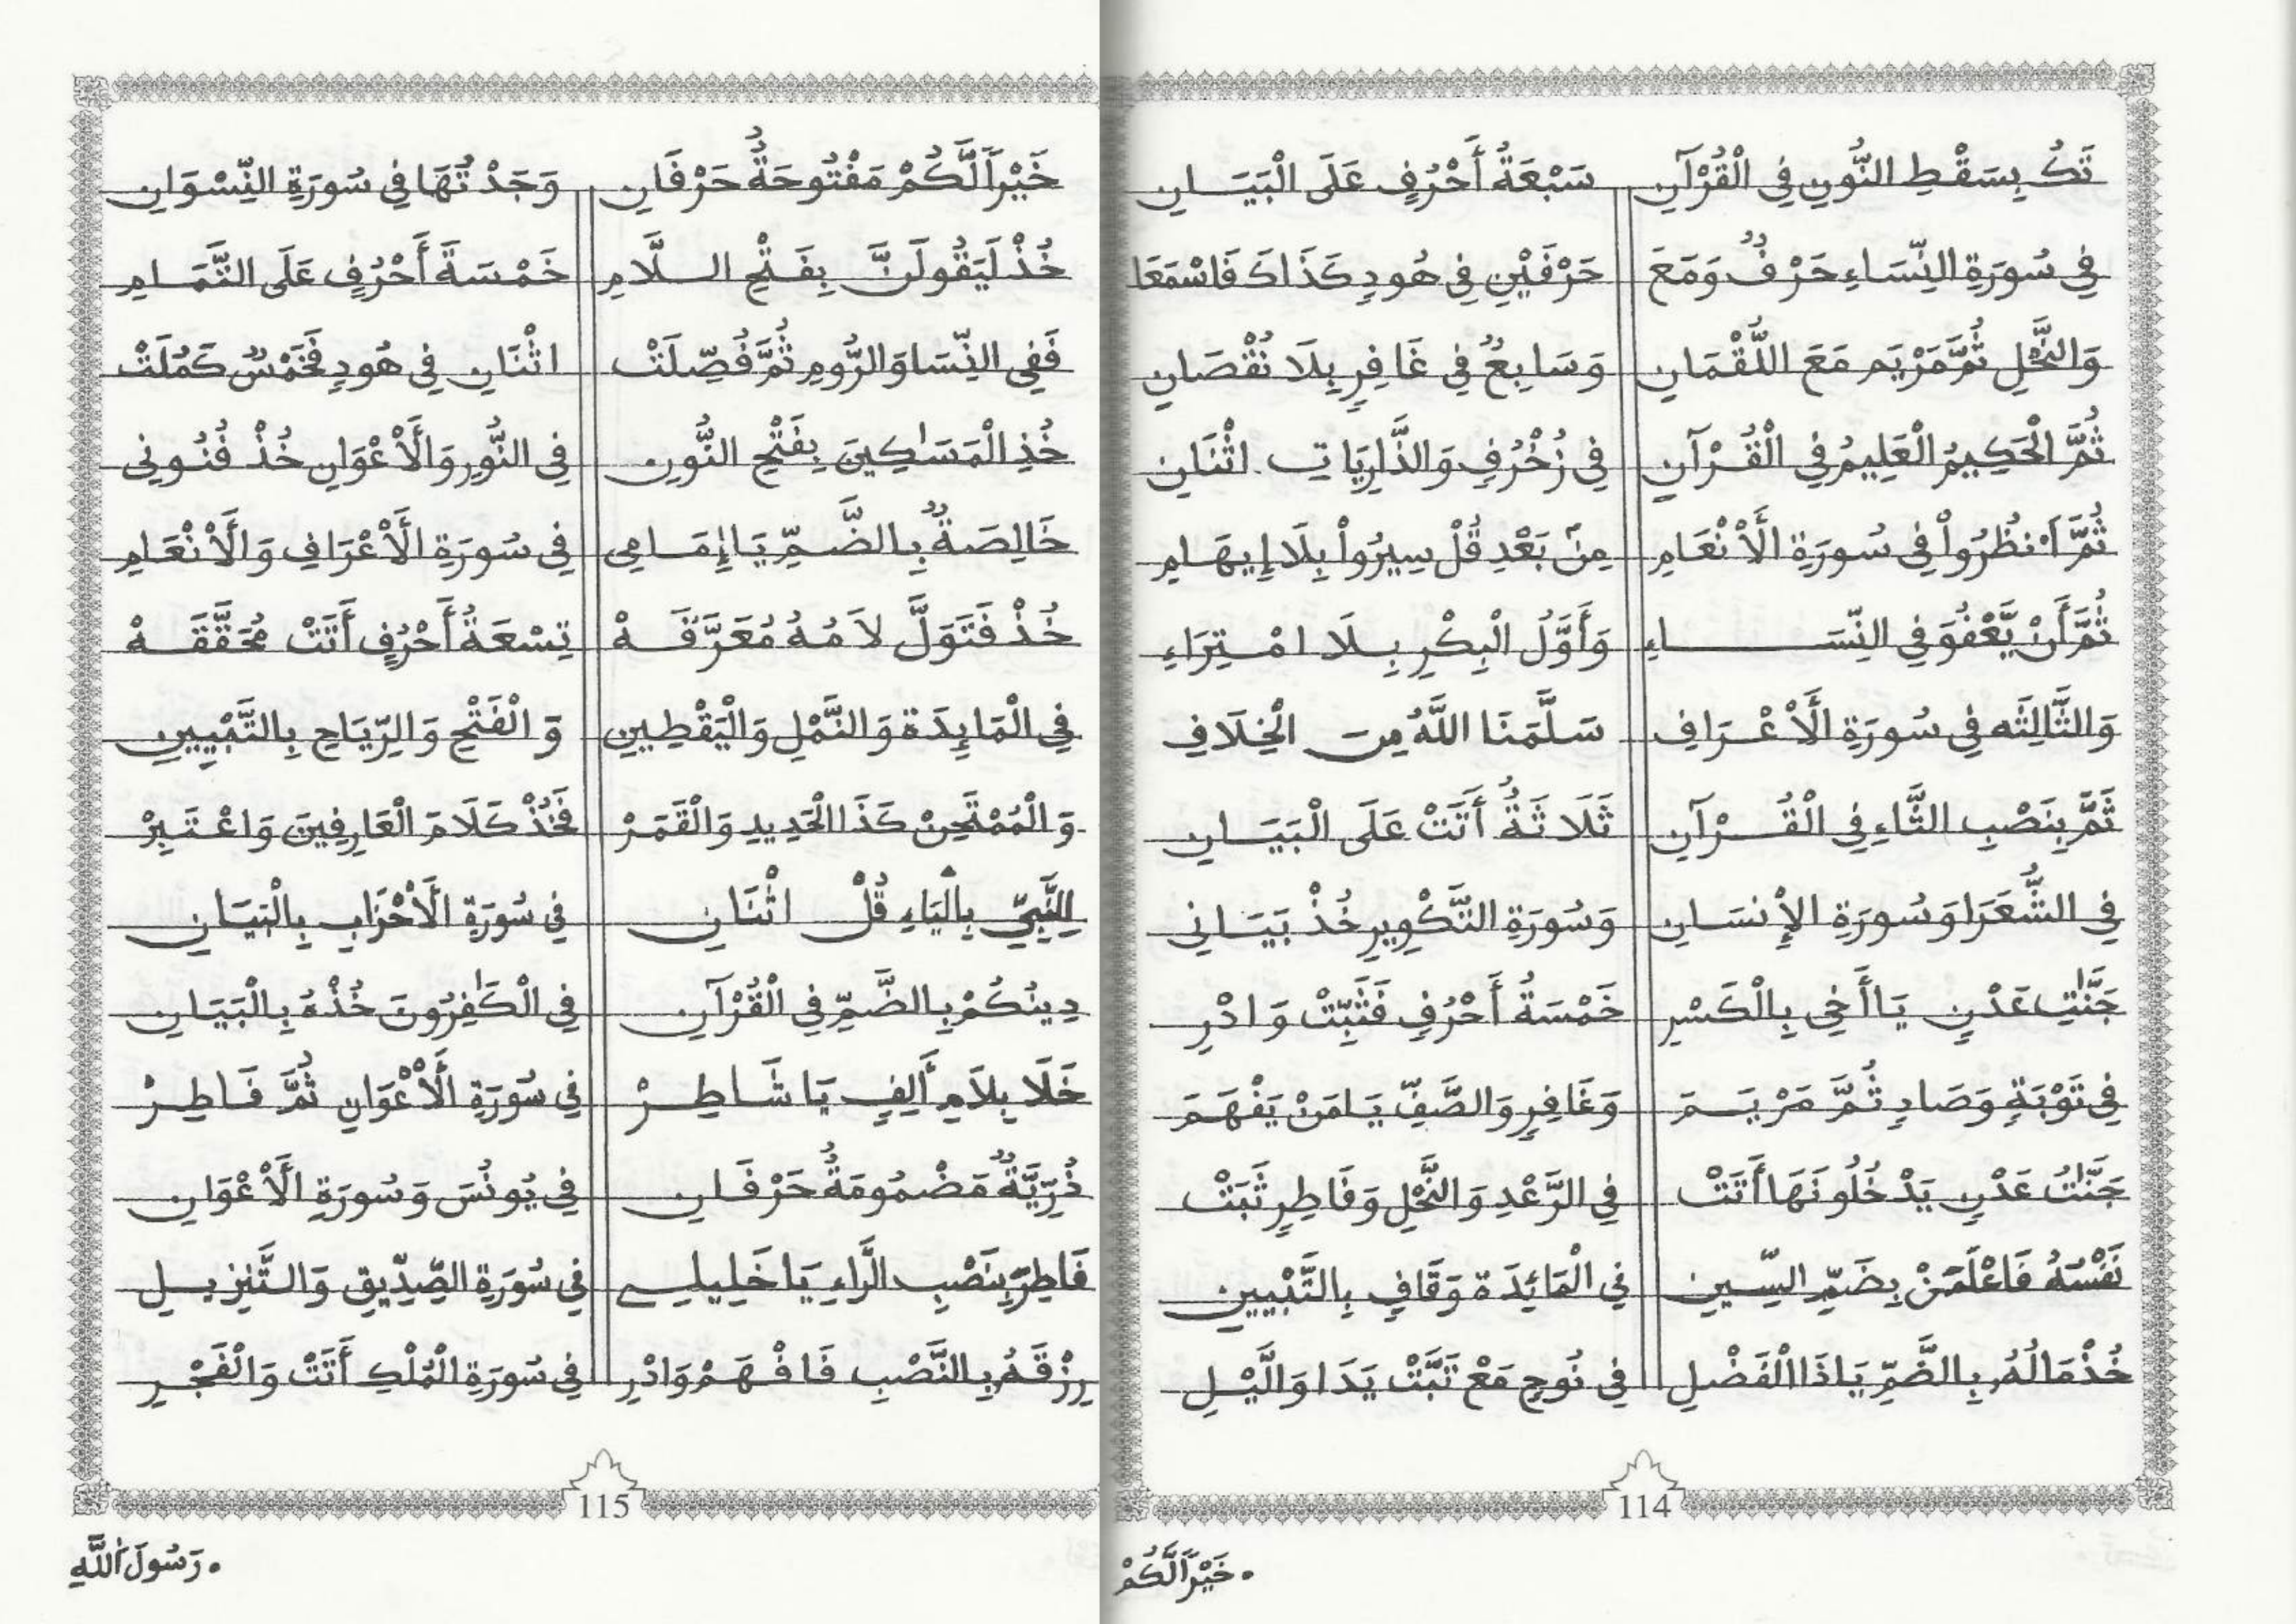 تَكُ بِسَقْطِ النُّونِ فِي الْقُرْآنِ سَبْعَةُ أَحْرُفٍ عَلَى الْبَيَانِ
فِي سُورَةِ النِّسَاءِ حَرْفٌ وَمَعَ حَرْفَيْنِ فِي هُودٍ كَذَاكَ فَاسْمَعَا
وَالنَّحْلِ ثُمَّ مَرْيَمِ مَعَ اللُّقْمَانِ وَسَابِعٌ فِي غَافِرٍ بِلَا نُقْصَانِ
ثُمَّ الْحَكِيمُ الْعَلِيمُ فِي الْقُرْآنِ فِي زُخْرُفٍ وَالذَّارِيَاتِ اثْنَانِ
ثُمَّ اَنظُرُواْ فِي سُورَةِ الْأَنْعَامِ مِنْ بَعْدِ قُلْ سِيرُواْ بِلَا إِيهَامِ
ثُمَّ أَنْ يَّعْفُوَ فِي النِّسَاءِ وَأَوَّلُ الْبِكْرِ بِلَا امْتِرَاءِ
وَالثَّالِثَه فِي سُورَةِ الْأَعْرَافِ سَلَّمَنَا اللَّهُ مِنَ الْخِلَافِ
ثَمَّ بِنَصْبِ الثَّاءِ فِي الْقُرْآنِ ثَلَاثَةُ أَتَتْ عَلَى الْبَيَانِ
فِي الشُّعَرَا وَسُورَةِ الْإِنسَانِ وَسُورَةِ التَّكْوِيرِ خُذْ بَيَانِي
جَنَّٰتِ عَدْنٍ يَا أَخِي بِالْكَسْرِ خَمْسَةُ أَحْرُفٍ فَثَبِّتْ وَادْرِ
فِي تَوْبَةٍ وَصَادِ ثُمَّ مَرْيَمَ وَغَافِرٍ وَالصَّفِّ يَا مَنْ يَفْهَمَ
جَنَّٰتُ عَدْنٍ يَدْخُلُونَهَا أَتَتْ فِي الرَّعْدِ وَالنَّحْلِ وَفَاطِرٍ ثَبَتْ
نَفْسُهُ فَاعْلَمَنْ بِضَمِّ السِّينِ فِي الْمَائِدَة وَقَافٍ بِالتَّبْيِينِ
خُذْ مَالُهُ بِالضَّمِّ يَا ذَا الْفَضْلِ فِي نُوحٍ مَعْ تَبَّتْ يَدَا وَالَّيْلِ
114
خَيْراً لَّكُمْ
خَيْراً لَّكُمْ مَفْتُوحَةٌ حَرْفَانِ وَجَدْتُهَا فِي سُورَةِ النِّسْوَانِ
خُذْ لَيَقُولَنَّ بِفَتْحِ السلَّامِ خَمْسَةَ أَحْرُفٍ عَلَى التَّمَامِ
فَفِي النِّسَا وَالرُّومِ ثُمَّ فُصِّلَتْ اثْنَانِ فِي هُودٍ فَخَمْسٌ كَمُلَتْ
خُذِ الْمَسَٰكِينَ بِفَتْحِ النُّونِ فِي النُّورِ وَالْأَعْوَانِ خُذْ فُنُونِي
خَالِصَةٌ بِالضَّمِّ يَا إِمَامِي فِي سُورَةِ الْأَعْرَافِ وَالْأَنْعَامِ
خُذْ فَتَوَلَّ لَامُهُ مُعَرَّقَهْ تِسْعَةُ أَحْرُفٍ أَتَتْ مُحَقَّقَهْ
فِي الْمَايِدَة وَالنَّمْلِ وَالْيَقْطِينِ وَالْفَتْحِ وَالرِّيَاحِ بِالتَّبْيِينِ
وَالْمُمْتَحِنْ كَذَا الْحَدِيدِ وَالْقَمَرْ فَخُذْ كَلَامَ الْعَارِفِينَ وَاعْتَبِرْ
لِلنَّبِيِّ بِالْيَاءِ قُلْ اثْنَانِ فِي سُورَةِ الْأَحْزَابِ بِالْبَيَانِ
دِينُكُمْ بِالضَّمِّ فِي الْقُرْآنِ فِي الْكَٰفِرُونَ خُذْهُ بِالْبَيَانِ
خَلَا بِلَامِ أَلِفٍ يَا شَاطِرْ فِي سُورَةِ الْأَعْوَانِ ثُمَّ فَاطِرْ
ذُرِّيَّةٌ مَضْمُومَةٌ حَرْفَانِ فِي يُونُسَ وَسُورَةِ الْأَعْوَانِ
فَاطِرَ بِنَصْبِ الرَّاءِ يَا خَلِيلِي فِي سُورَةِ الصِّدِّيقِ وَالتَّنْزِيلِ
رِزْقَهُ بِالنَّصْبِ فَافْهَمْ وَادْرِ فِي سُورَةِ الْمُلْكِ أَتَتْ وَالْفَجْرِ
115
رَسُولَ اللَّهِ